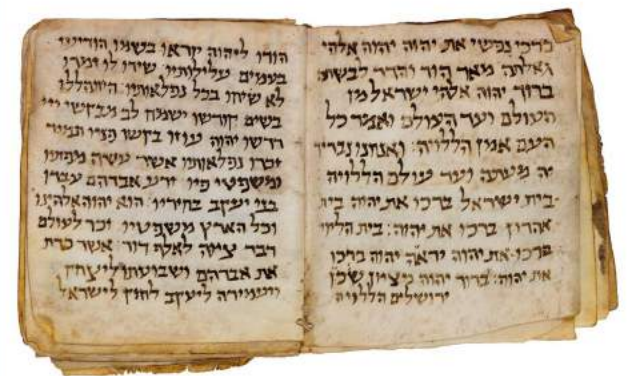 ברכי נפשי את יהוה יהוה אלהי
מאד הוד והדר לבשת
ברוך יהוה אלהי ישראל מן
העולם ועד העולם ואמר כל
העם אמן הללויה: ואנחנו נבריך
יה מעתה ועד עולם הללויה
בית ישראל ברכו את יהוה בית
אהרון ברכו את יהוה: בית הלוי
ברכו את יהוה יראי יהוה ברכו
את יהוה: ברוך יהוה מציון שכן
ירושלים הללויה
הודו ליהוה קראו בשמו הודיעו
בעמים עלילותיו שירו לו זמרו
לא שיחו בכל נפלאותיו התהללו
בשם קודשו ישמח לב מבקשי ייי
דרשו יהוה עוזו בקשו פניו תמיד
זכרו נפלאותיו אשר עשה מופתיו
ומשפטי פיו זרע אברהם עבדו
בני יעקב בחיריו הוא יהוה אלהינו
וכל הארץ משפטיו זכר לעולם
דבר ציוה לאלף דור אשר כרת
את אברהם ושבועתו ליצחק
ויעמידה ליעקב לחוק לישראל